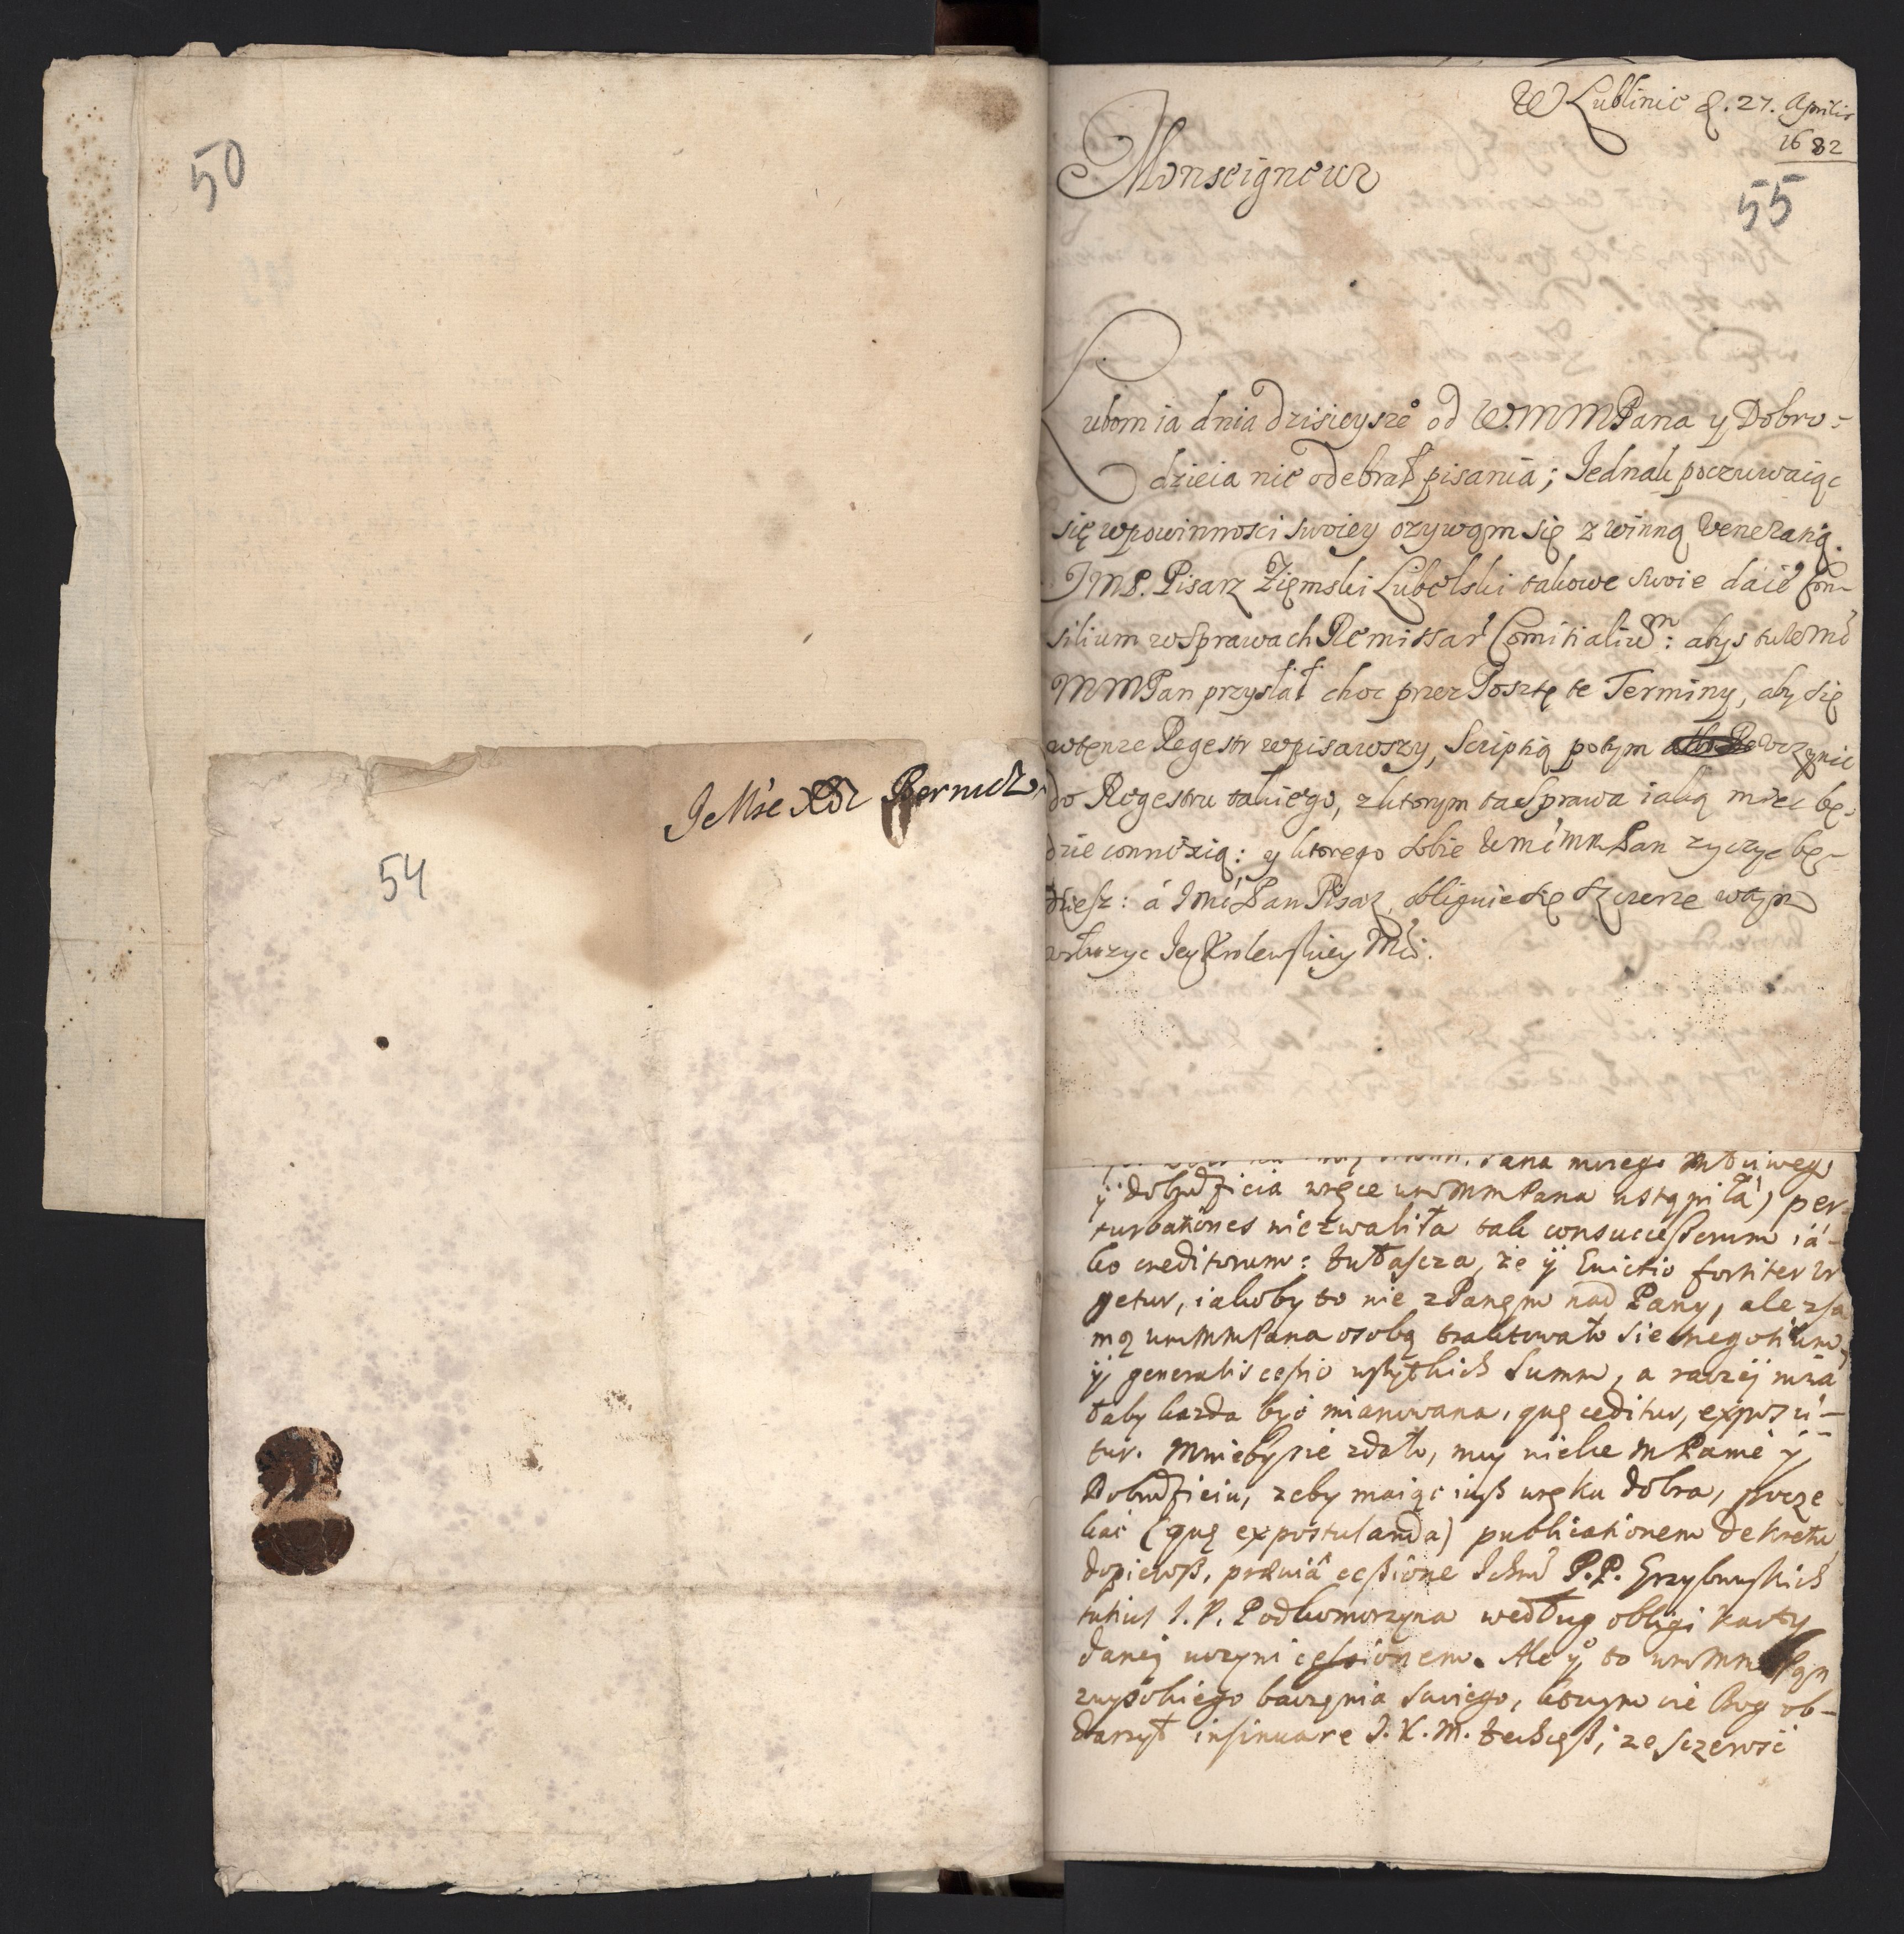 50
JeMśc Xdz Bernicz
54
W Lublinie d. 27. Aprilis
1682
55
Monseigneur
Lubom ia dnia dzisieysze° od W.M M Pana y Dobro-
dzieia nie odebrał pisania; Jednak poczuwaiąc
się wpowinnosci swoiey ozywąm się z winną Veneraną.
JMP. Pisarz Ziemski Lubelski takowe swoie daie Con-
silium w Sprawach Remissar Comitialium: abys tu
MMPan przysłał choc przez Posztę te Terminy, aby się
wtenze Regestr wpisawszy, Scriptią potym Vczynic
do Regestru takiego, z ktorym ta Sprawa iaką miec bę-
dzie connexią: y ktorego sobie WmćMMPan zyczyc bę-
dziesz: á JmćPan Pisarz, obliguie się szczerze wtym
wsłuzyc Jey Krolewskiey Mći.
Pana mego Młściwego
y dobrodzieia wręce wmMmPana ustąpiła, per-
turbationes niezwaliła tak consuccessorum iá-
ko creditorum: tutascza, że ÿ Evictio fortiter Vr
getur, iakoby to nie z Panem nad Pany, ale z sa
mą wmMmPana osobą traktowało sie negotium,
ÿ generalis cessio wszytkich Summ, a raczéj mia
łaby kazda być mianowana, quę ceditur, exposci-
tur. Mniebysie zdało, muj wielce MPanie ÿ
Dobrodzieiu, zeby maiąc iusz wręku dobra, pocze
kać (quę expostulanda) publicationem dekretu,
dopierosz, prævia cessione Ichmć P.P. Grzybowskich
J.P. Podkomorzyna według obligi karty
danej uczyni cessionem. Ale y to wmMmPan
zwysokiego baczenia swiego, ktorym cie Bog ob-
darzył insinuare J.K.M. zechcesz, ze sczerość